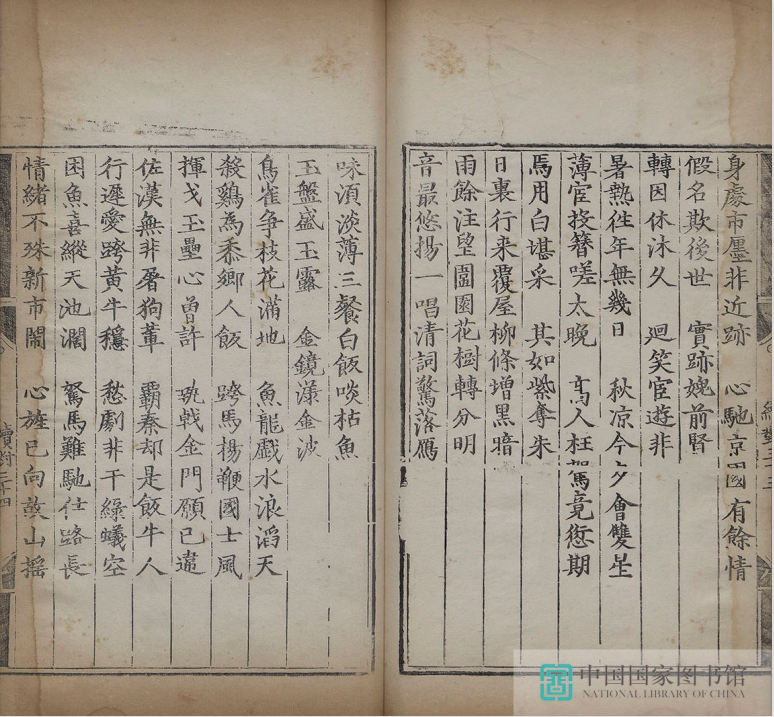 身處市廛非近跡 心馳京國有餘情
假名欺後世 實跡媿前賢
轉因休沐久 迴笑宦遊非
暑熱徃年無幾日 秋凉今夕會雙星
薄宦投簪嗟太晩 高人枉駕竟愆期
焉用白堪采 其如紫奪朱
日裏行来覆屋柳條增黒暗
雨餘注望園花樹轉分明
音最悠揚一唱清詞驚落鴈
味湏淡薄三餐白飯啖枯魚
玉盤盛玉露 金鏡漾金波
鳥雀争枝花滿地 魚龍戯水浪滔天
殺鷄為黍鄉人飯 跨馬楊鞭國士風
揮戈玉壘心曽許 執戟金門願已違
佐漢無非屠狗軰 覇秦却是飯牛人
行遲愛跨黃牛穩 愁劇非干綠蟻空
困魚喜縱天池濶 駑馬難馳仕路長
情緒不殊新市閙 心旌已向故山揺
續對三十四
中国国家图书馆
NATIONAL LIBRARY OF CHINA